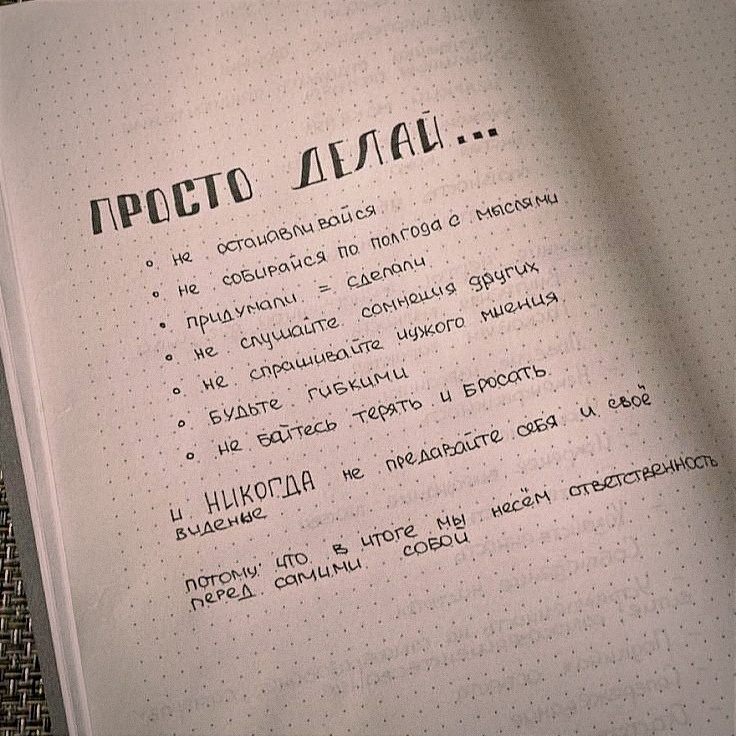 ПРОСТО ДЕЛАЙ...
• не останавливайся
• не собирайся по полгода с мыслями
• придумали = сделали
• не слушайте сомнения других
• не спрашивайте чужого мнения
• будьте гибкими
• не байтесь терять и бросать
и НИКОГДА не предавайте себя и своё
виденье
потому что в итоге мы несём ответственность
перед самими собой